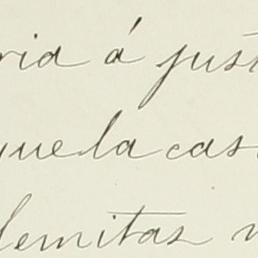 ria á just
que la cas
lemitas n